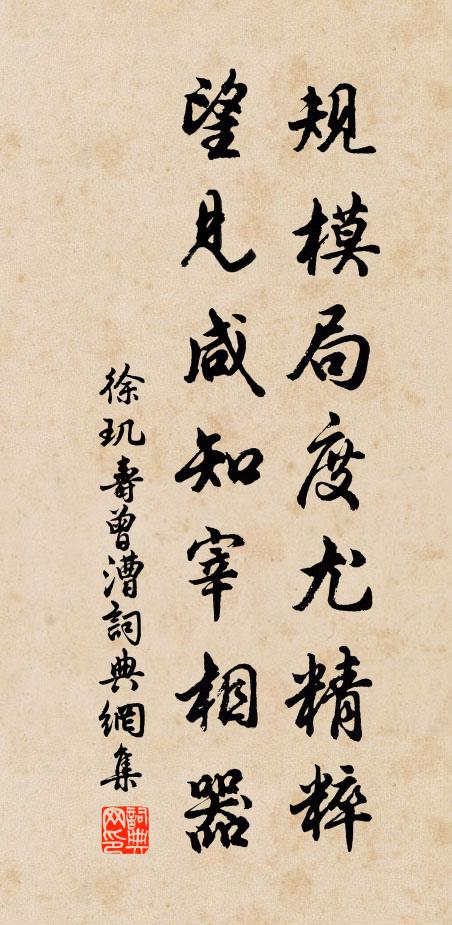 規模局度尤精粹
望見咸知宰相器
徐玑壽曾漕詞典網集
詞典網印